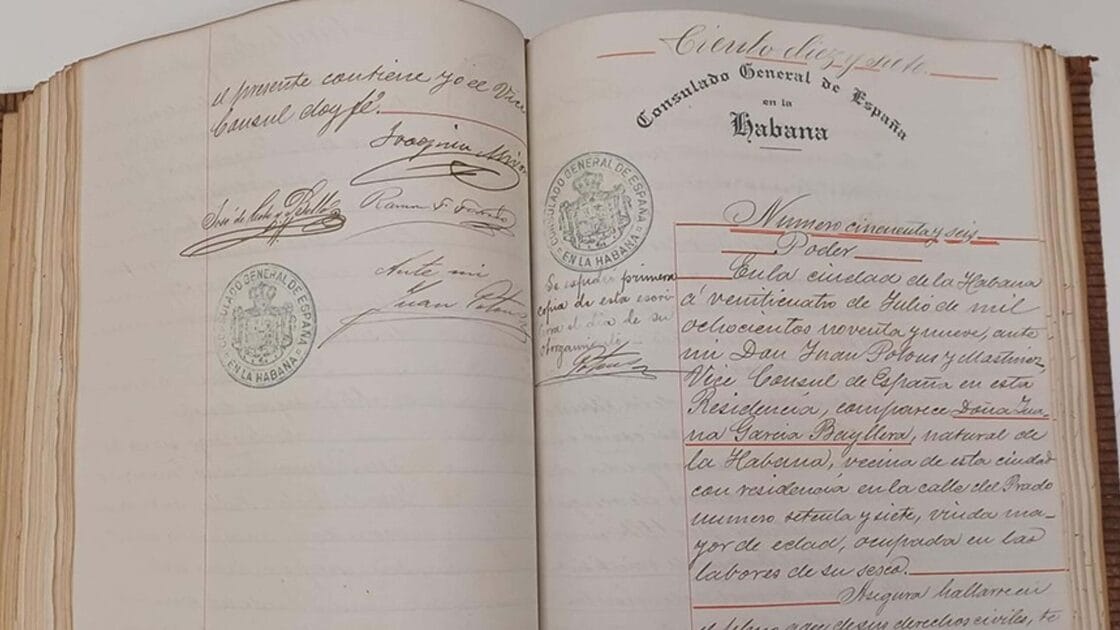 el presente contiene yo el Vice
Consul doy fé.
José de
Ramon F.
Ante mi
Juan Potous
CONSULADO GENERAL DE ESPAÑA
EN LA HABANA
Ciento diez y siete.
Consulado General de España
en la
Habana
CONSULADO GENERAL DE ESPAÑA
EN LA HABANA
Se espidió primera
copia de esta escri-
tura el dia de su
otorgamiento
Potous
Numero cincuenta y seis
Poder
En la ciudad de la Habana
á veinticuatro de Julio de mil
ochocientos noventa y nueve, ante
mi Don Juan Potous y Martinez
Vice Consul de España en esta
Residencia, comparece Doña Jua-
na Garcia Bayllera, natural de
la Habana, vecina de esta ciudad
con residencia en la calle del Prado
numero setenta y siete, viuda ma-
yor de edad, ocupada en las
labores de su sexo.
Asegura hallarse en
el pleno goce de sus derechos civiles, te